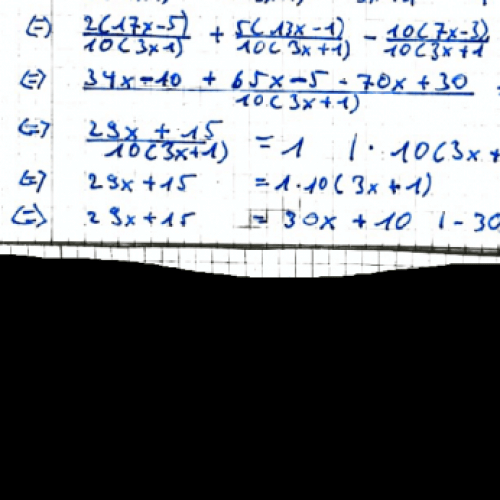 (=) 2(17x-5)/10(3x1) + 5(13x-1)/10(3x+1) - 10(7x-3)/10(3x+1
(=) 34x-10 + 65x-5-70x+30/10(3x+1)
(=) 29x+15/10(3x+1) = 1 | · 10(3x+
(=) 29x+15 = 1·10(3x+1)
(=) 29x+15 = 30x+10 |-30